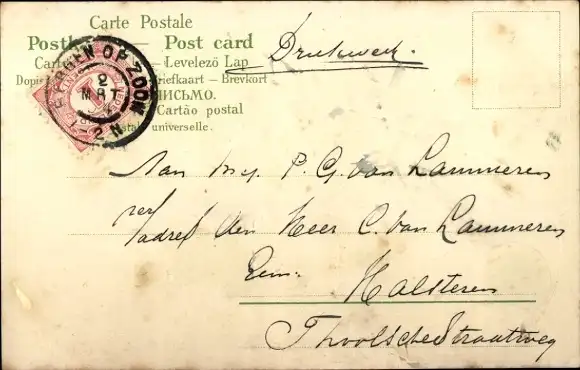 Carte Postale
Drukwerk.
Postk — Post card
Cart — Levelező Lap
Dopis — Briefkaart — Brevkort
ПИСЬМО.
Cartão postal
universelle.
BERGEN OP ZOOM
2
MRT
- 2 N
Aan mej. P. G. van Lammeren
per adres den Heer C. van Lammeren
Halsteren
Thoolsche Straatweg